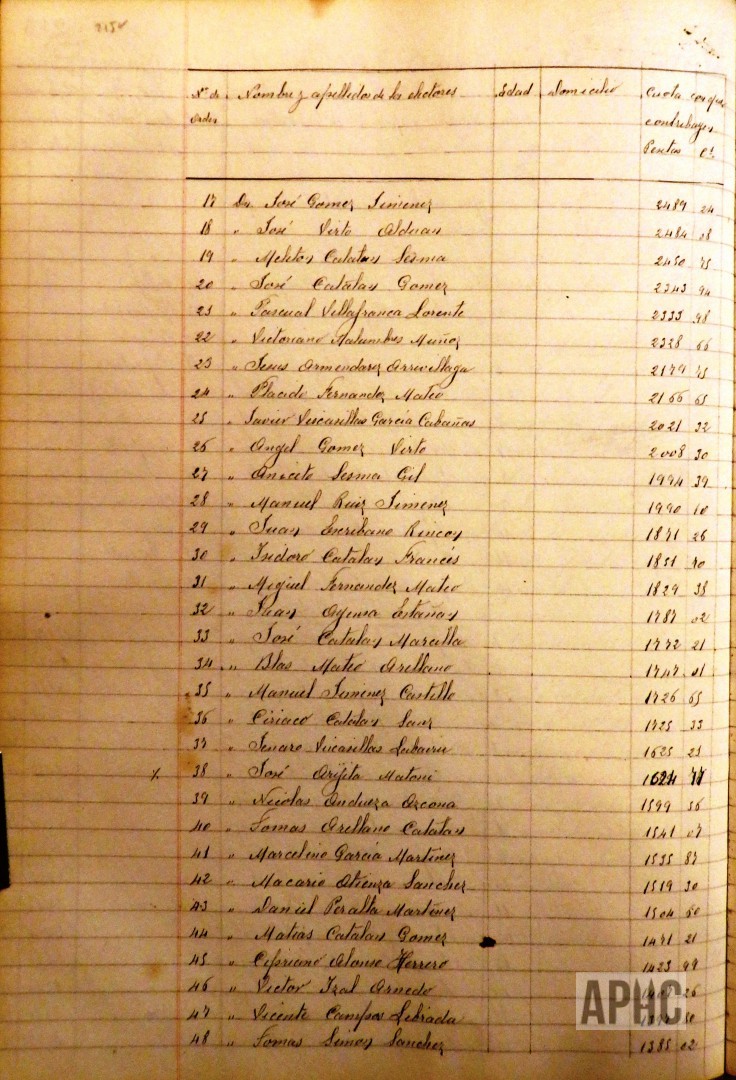 215v
Nº de Nombre y apellidos de los electores Edad Domicilio Cuota con que
orden contribuyen
Pesetas Cs
17 Dn. José Gomez Jimenez 2489 24
18 " José Virto Alduan 2484 08
19 " Melitos Catalan Sesma 2450 75
20 " José Catalan Gomez 2343 94
21 " Pascual Villafranca Lorente 2333 98
22 " Victoriano Malumbres Muñoz 2328 66
23 " Jesus Armendarez Arrivillaga 2179 75
24 " Placido Fernandez Mateo 2166 65
25 " Javier Vicasillas García Cabañas 2021 32
26 " Angel Gomez Virto 2008 30
27 " Aniceto Sesma Gil 1994 39
28 " Manuel Ruiz Jimenez 1990 10
29 " Juan Escribano Rincon 1871 26
30 " Isidoro Catalan Francés 1851 70
31 " Miguel Fernandez Mateo 1829 38
32 " Juan Ayensa Estañan 1787 02
33 " José Catalan Marcilla 1772 21
34 " Blas Mateo Arellano 1747 01
35 " Manuel Jimenez Castillo 1726 65
36 " Ciriaco Catalan Sanz 1725 33
37 " Jenaro Vicasillas Labairu 1625 23
38 " José Arijita Matoni 1624 77
39 " Nicolas Andueza Azcona 1599 56
40 " Tomas Arellano Catalan 1541 07
41 " Marcelino García Martinez 1535 87
42 " Macario Atienza Sanchez 1519 30
43 " Daniel Peralta Martinez 1504 60
44 " Matias Catalan Gomez 1471 21
45 " Cipriano Alonso Herrero 1423 99
46 " Victor Izal Arnedo 26
47 " Vicente Campos Librada 50
48 " Tomas Simon Sanchez 1385 02
APHC